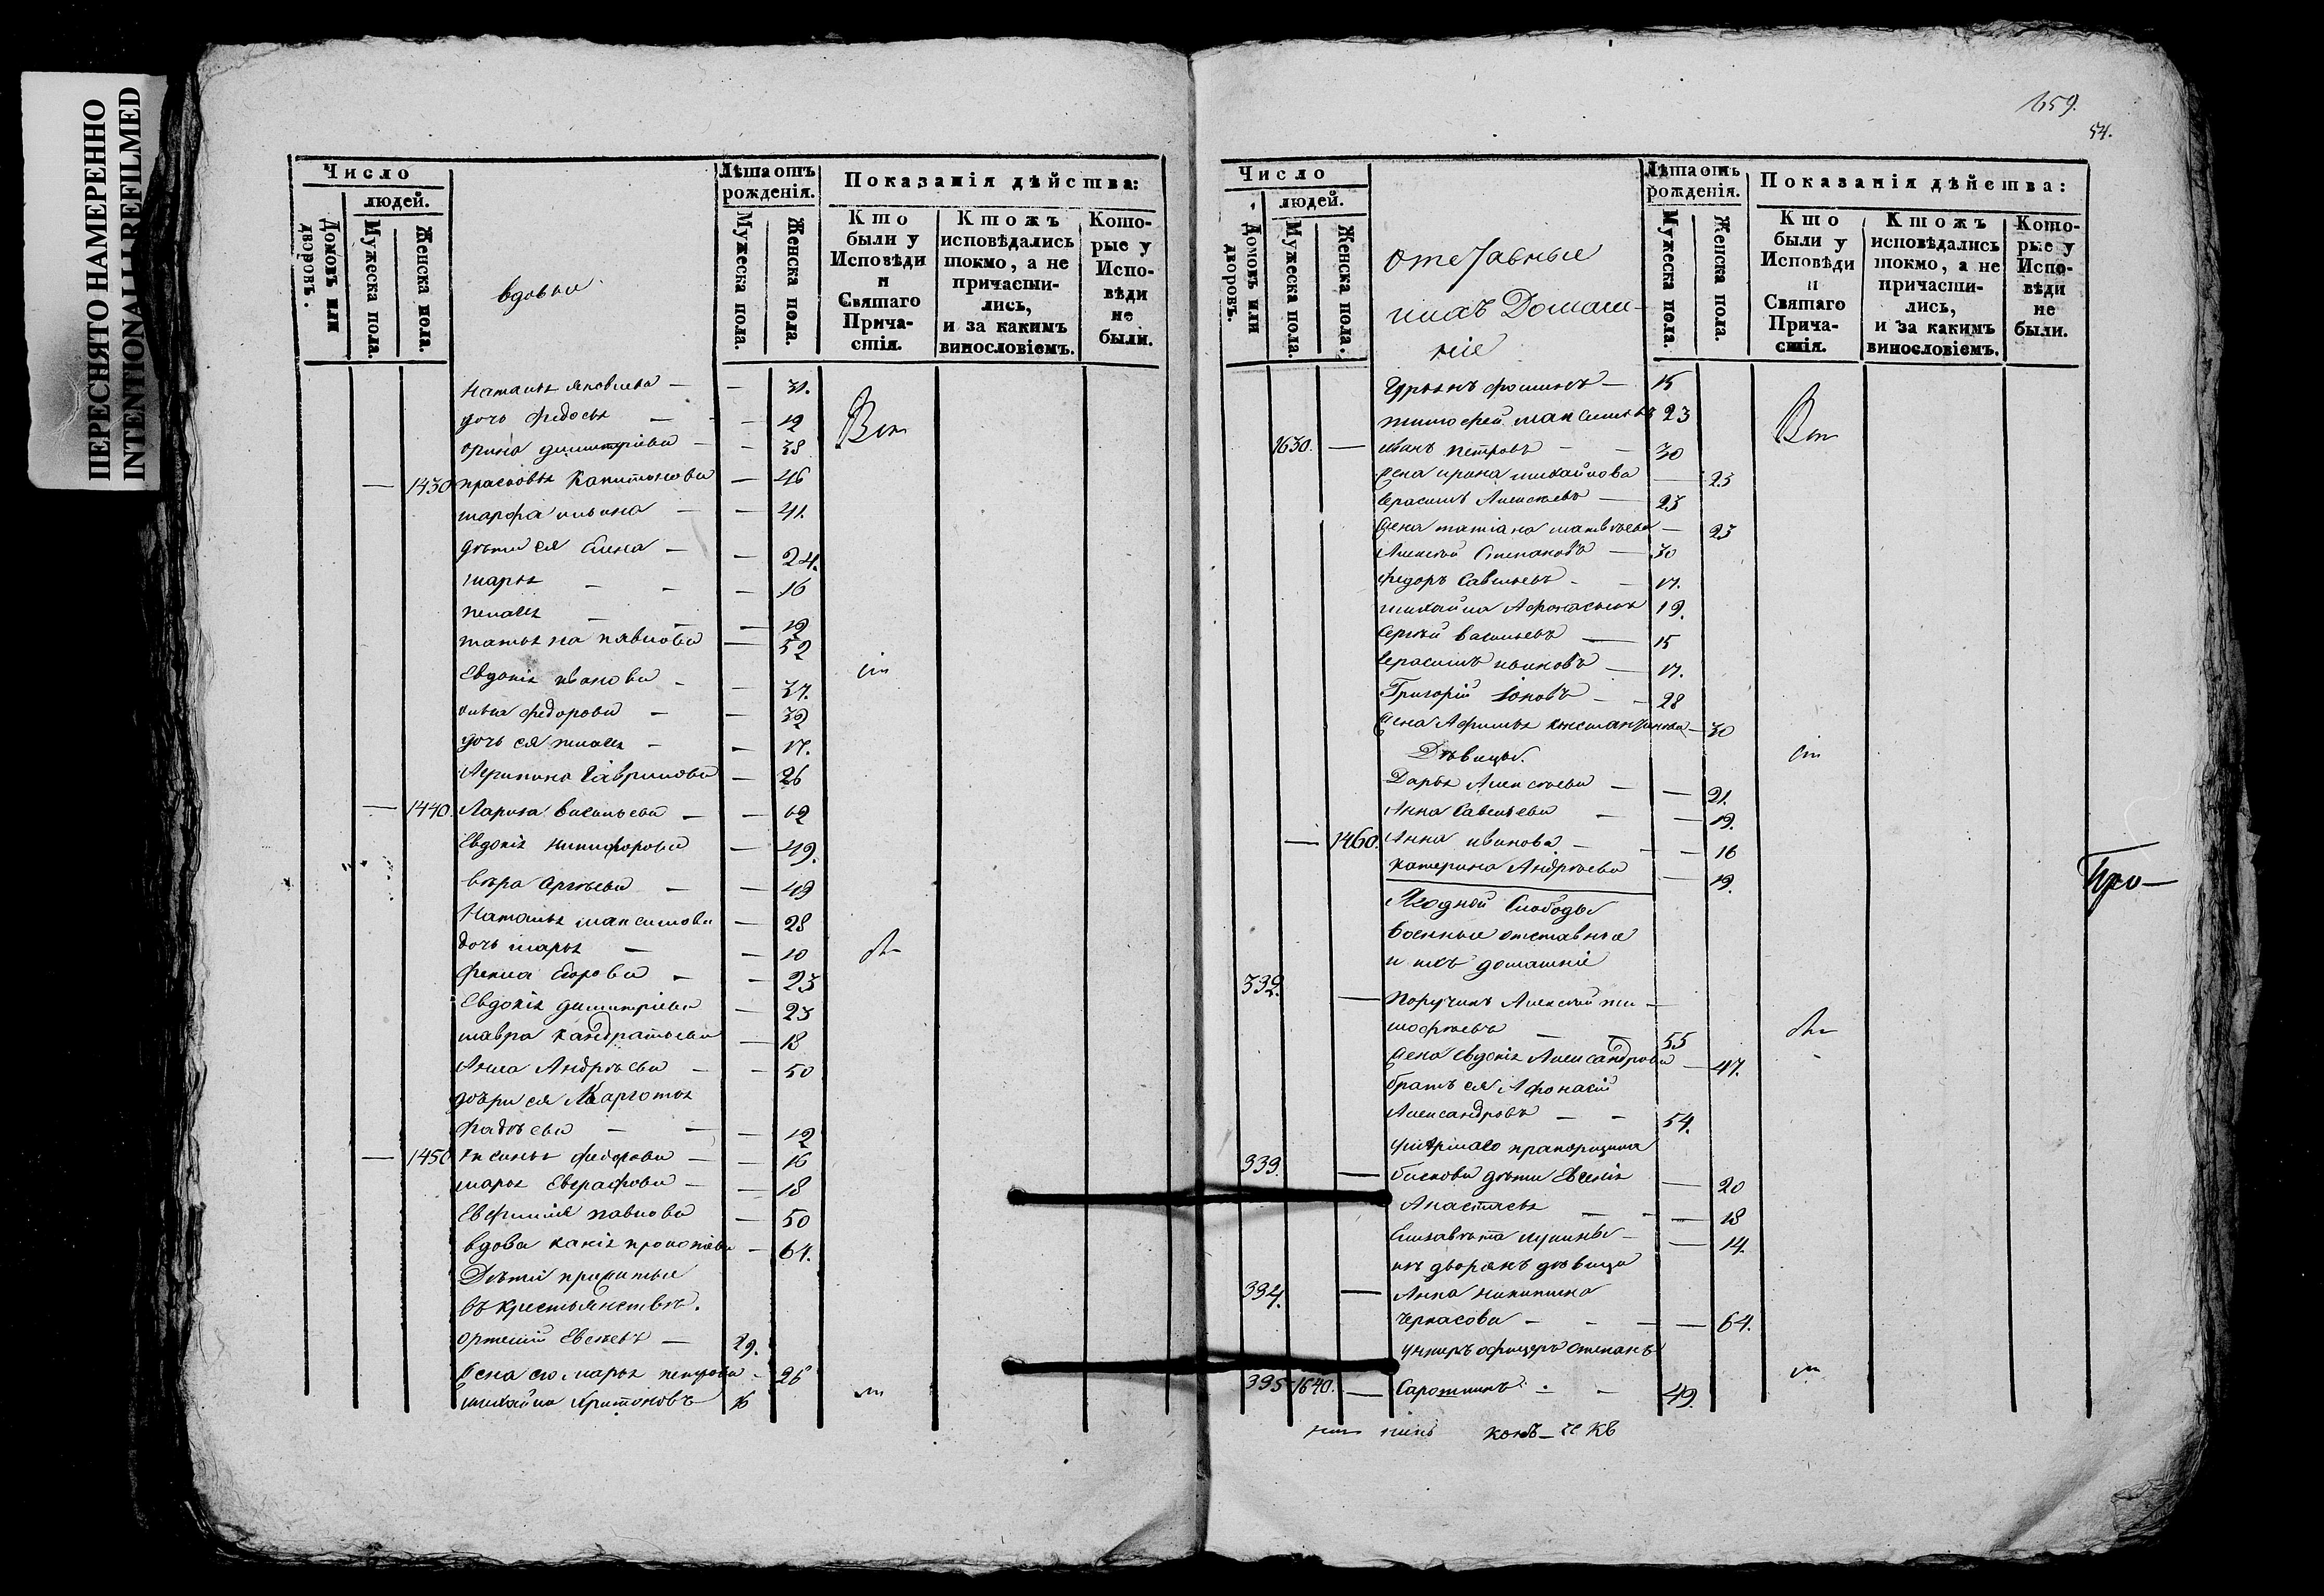 ПЕРЕСНЯТО НАМЕРЕННО
INTENTIONALLY REFILMED
Число
людей.
Домовъ или дворовъ.
Мужеска пола.
Женска пола.
вдовы
Лѣта отъ рожденія.
Мужеска пола.
Женска пола.
Показанія дѣйства:
Кто были у Исповѣди и Святаго Причастія.
Ктожъ исповѣдались токмо, а не причастились, и за какимъ винословіемъ.
Которые у Исповѣди не были.
Наталья Яковлева — — 31.
дочь Федосья — — 12
Орина димитріева — — 38
— 1430 Прасковья Капитонова — 46
марфа ильина — — 41.
дѣти ея Елена — — 24.
марья — — — 16
Пелагея — — — 12
татьяна павлова — 52
Евдокія иванова — — 37.
федорова — — 32
дочь ея пелагея — — 17.
Агрипина Гаврилова — 26
— 1440. Васильева — — 62
Евдокія никифорова — 49.
Вѣра Сргѣева — — 49
Наталья максимова — 28
дочь марья — — 10
Фекла Егорова — — 23
Евдокія димитріева — 23
мавра Кандратьева — 18
Анна Андрѣева — — 50
дочри ея
Фадѣева — — — 12
— 1450 Аксинья федорова — — 16
марья Евграфова — — 18
Евфимія павлова — 50
вдова — 64.
Дѣти
въ крестьянствѣ.
— 29.
жена его марья петрова — 26
михайла 16
1659.
54.
Число
людей.
Домовъ или дворовъ.
Мужеска пола.
Женска пола.
отставные
ихъ Домаш-
ніе
Лѣта отъ рожденія.
Мужеска пола.
Женска пола.
Показанія дѣйства:
Кто были у Исповѣди и Святаго Причастія.
Ктожъ исповѣдались токмо, а не причастились, и за какимъ винословіемъ.
Которые у Исповѣди не были.
Гурьянъ фоминъ — 15
тимофей максимовъ 23
1630. — иванъ петровъ — — 30
жена ирина михайлова — 23
Герасимъ Алексѣевъ — 23
жена татіана матвѣева — 23
Алексѣй Степановъ — 30
Федоръ Савельевъ — — 17.
михайла Афонасьевъ 19.
Сергѣй васильевъ — 15
Герасимъ ивановъ — 17.
Григорій Іоновъ — — 28
жена Афимья константинова — 30
Дѣвицы.
Дарья Алексѣева — — 21.
Анна Савельева — — 19.
— 1460. Анна иванова — — — 16
Катерина Андрѣева — 19.
Ягодной Слободы
военныя отставныя
и ихъ домашніе
332. — Поручикъ Алексѣй ти —
мофѣевъ — — 55
жена Евдокія Александрова — 47.
братъ ея Афонасій
Александровъ — — 54.
умершаго прапорщика
333. — дѣти Евгенія — 20
Анастасья — — — 18
Елизавѣта — — 14.
изъ дворянъ дѣвица
334. — Анна никитина
Черкасова — — — — 64.
унтеръ офицеръ Степанъ
335 1640. — — 49.
Про—